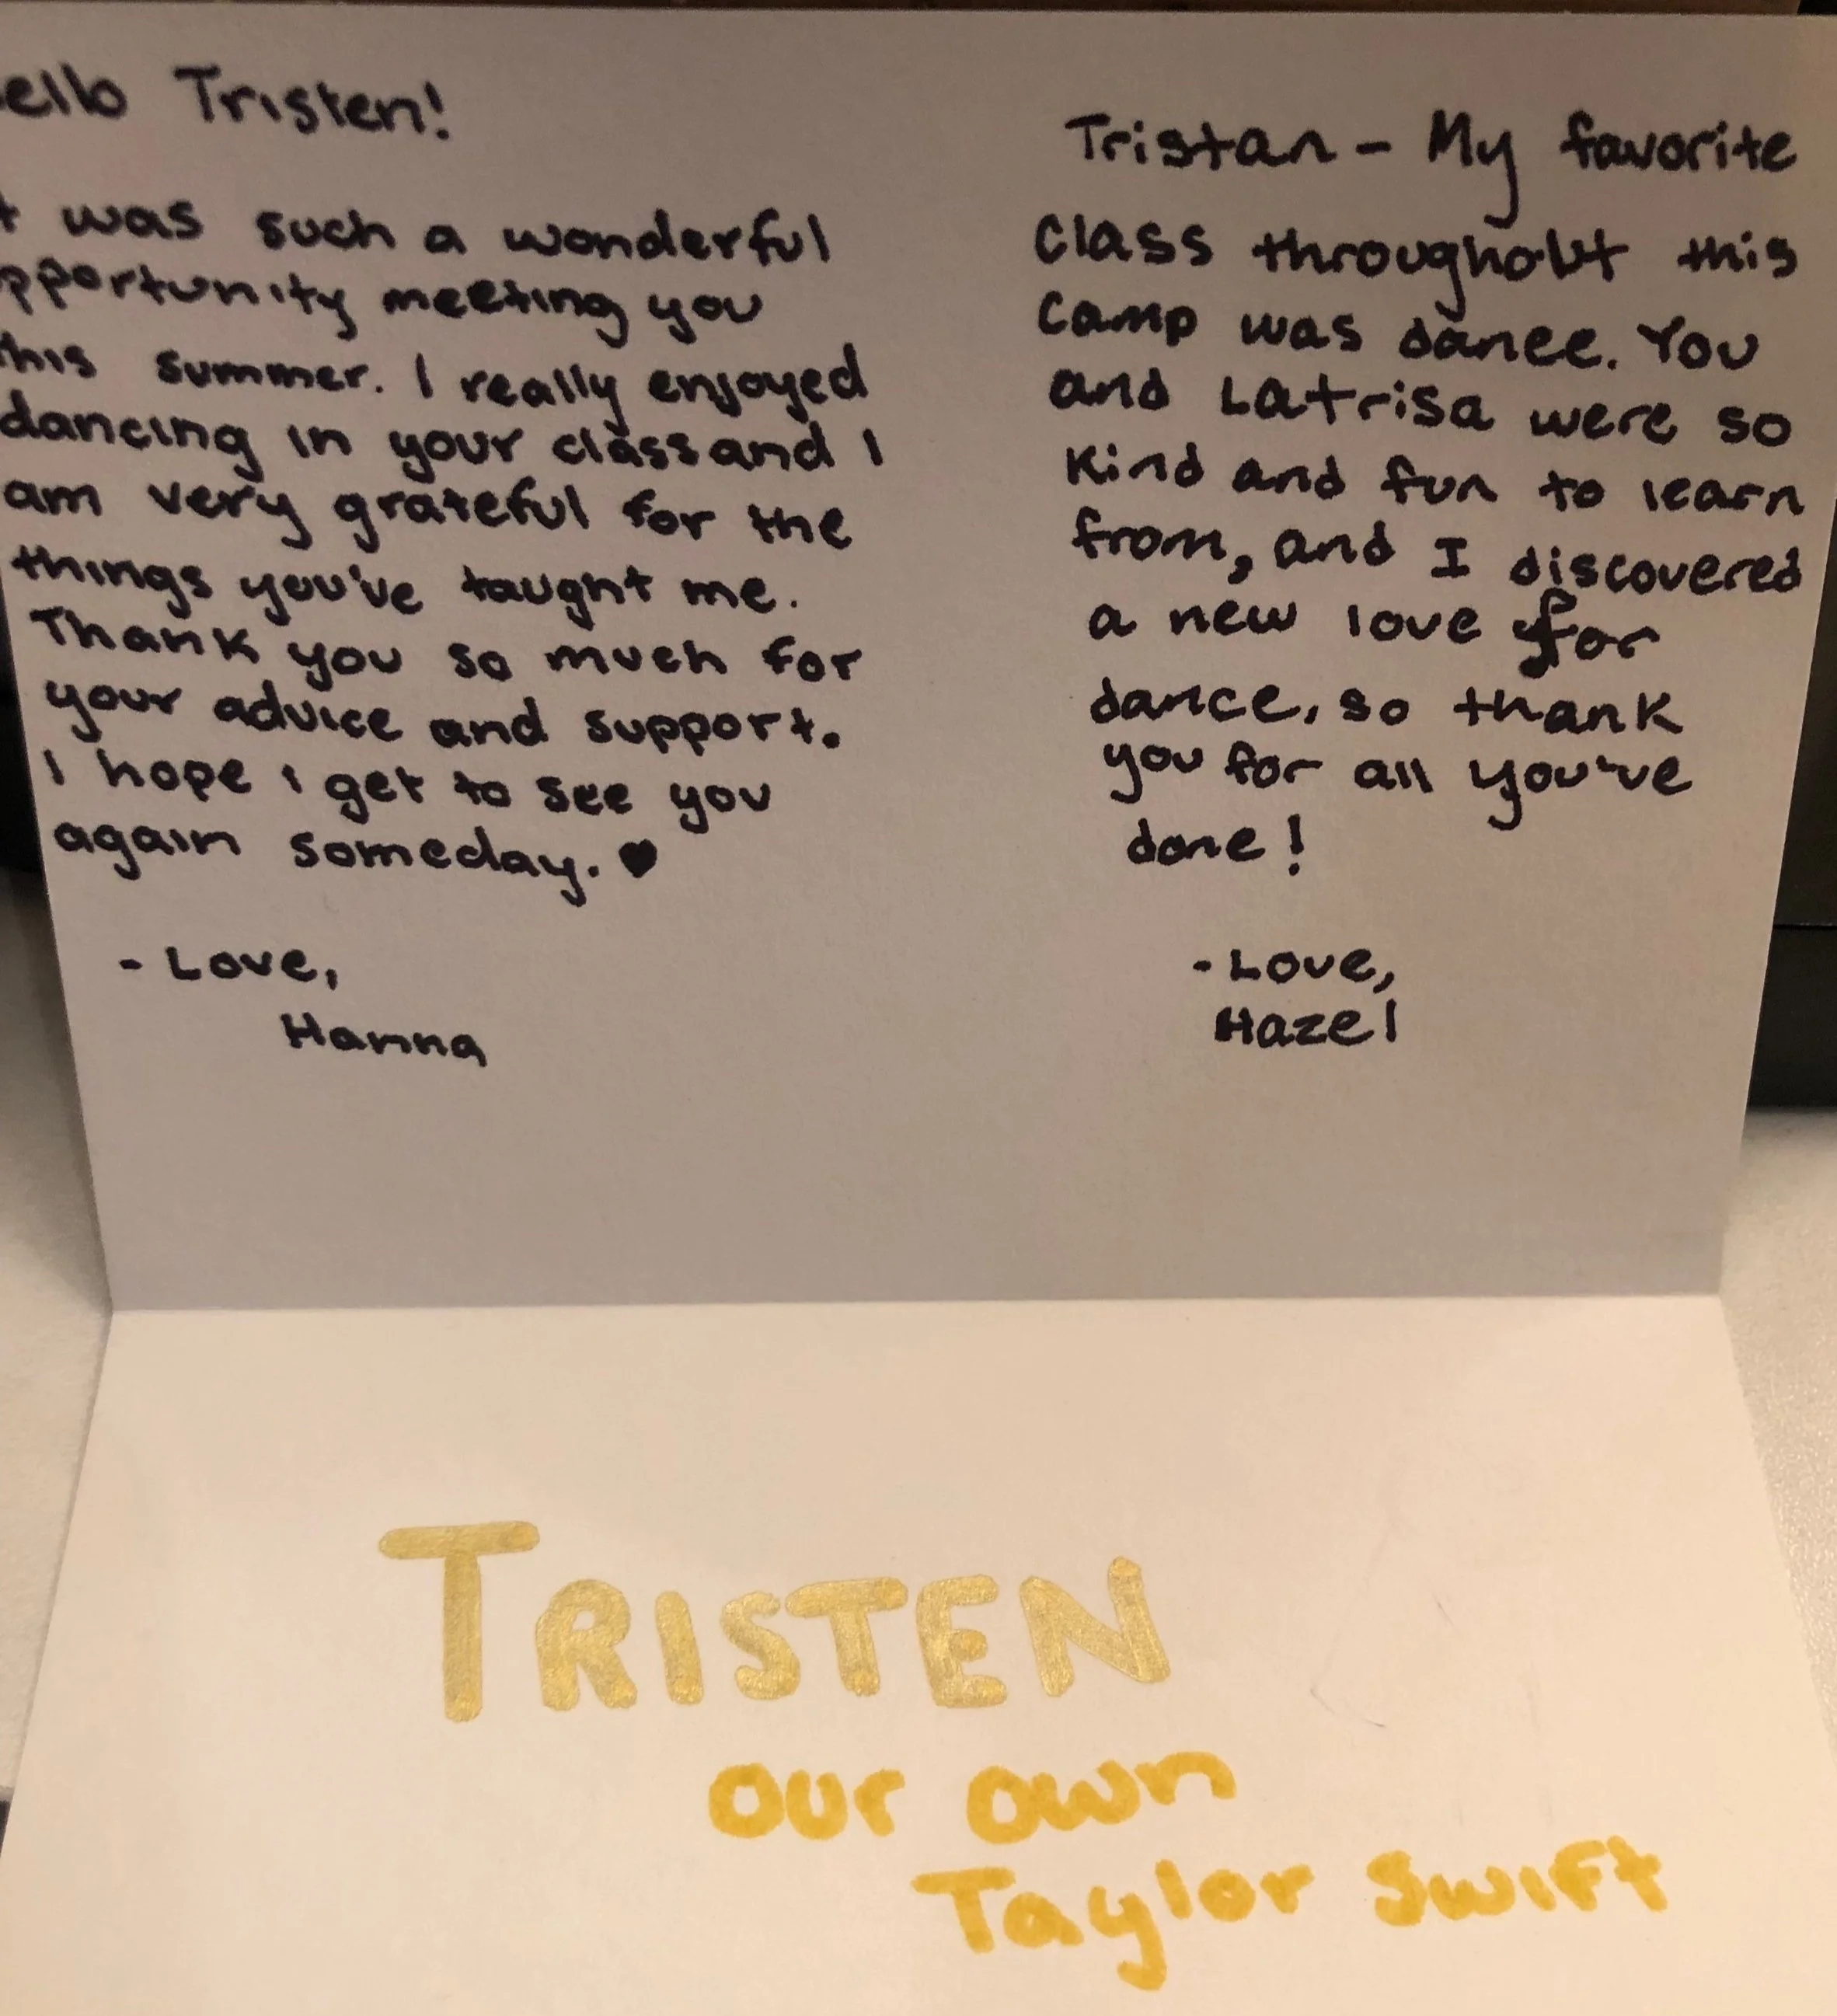 ello Tristen!
t was such a wonderful
pportunity meeting you
his summer. I really enjoyed
dancing in your class and I
am very grateful for the
things you've taught me.
Thank you so much for
your advice and support.
I hope i get to see you
again someday. ♥
- Love,
Hanna
Tristan - My favorite
class throughout this
camp was dance. You
and Latrisa were so
kind and fun to learn
from, and I discovered
a new love for
dance, so thank
you for all you've
done!
- Love,
Hazel
TRISTEN
our own
Taylor Swift